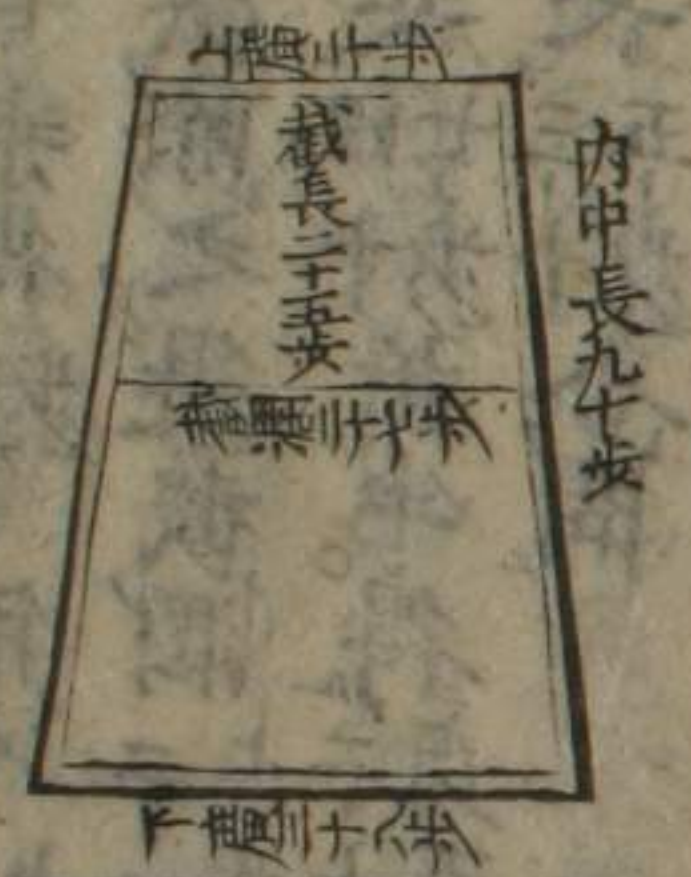 上廣二十步
截長二十五步
截濶二十七步
內中長九十步
下廣三十八步